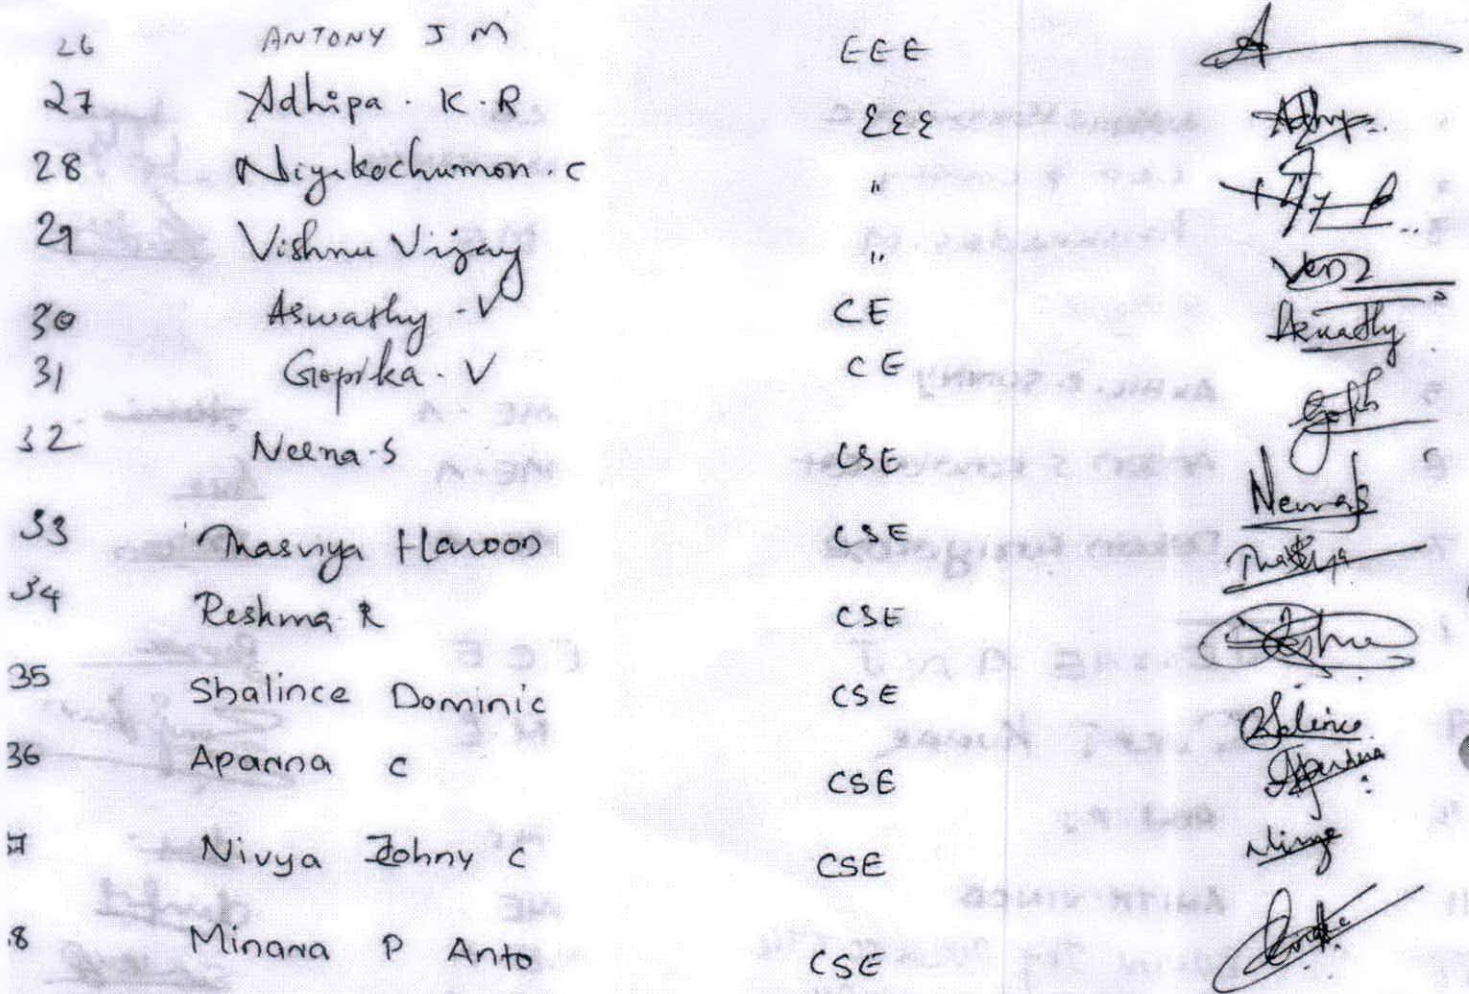 26 ANTONY J M EEE A
27 Adhipa . K . R EEE
28 Niyakochumon . C "
29 Vishnu Vijay "
30 Aswathy . V CE Aswathy
31 Gopika . V CE
32 Neena . S CSE Neena S
33 Thasniya Haroon CSE
34 Reshma R CSE
35 Shalince Dominic CSE
36 Aparna C CSE Aparna
7 Nivya Johny C CSE
8 Minana P Anto CSE